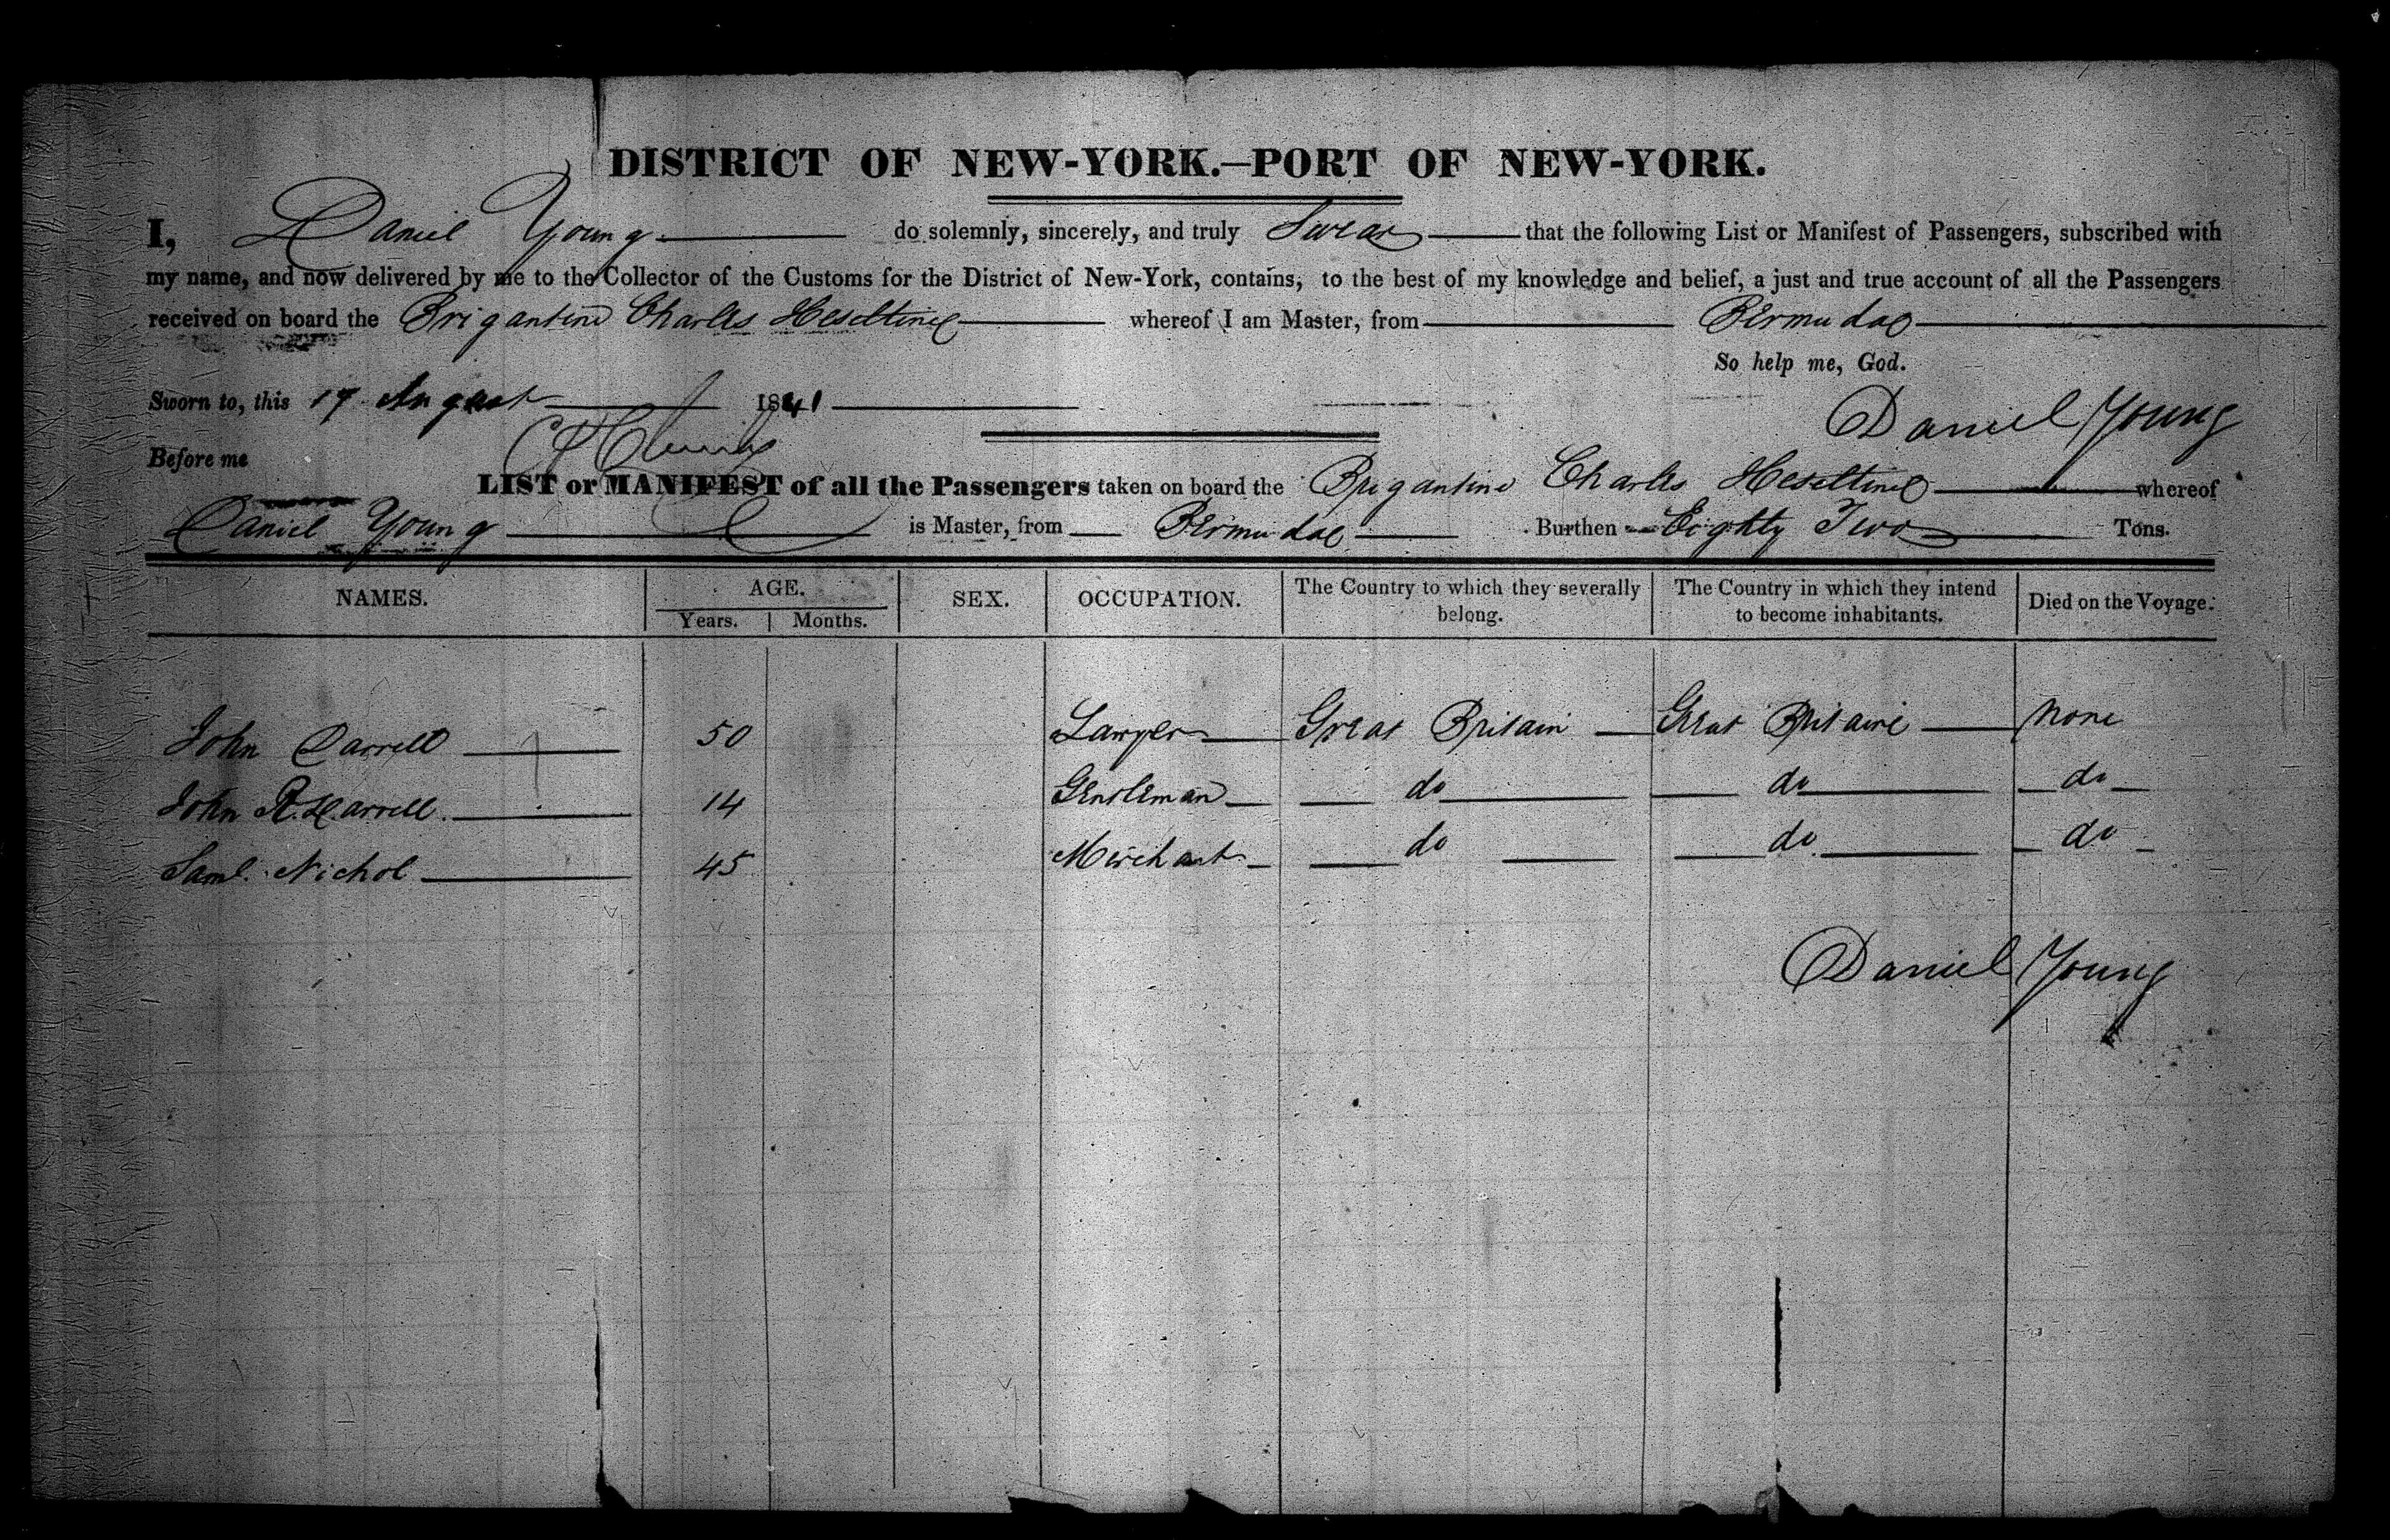 DISTRICT OF NEW-YORK.—PORT OF NEW-YORK.
I, Daniel Young do solemnly, sincerely, and truly Swear that the following List or Manifest of Passengers, subscribed with
my name, and now delivered by me to the Collector of the Customs for the District of New-York, contains, to the best of my knowledge and belief, a just and true account of all the Passengers
received on board the Brigantine Charles Heseltine whereof I am Master, from Bermuda
So help me, God.
Sworn to, this 17 August 1841
Daniel Young
Before me
LIST or MANIFEST of all the Passengers taken on board the Brigantine Charles Heseltine whereof
Daniel Young is Master, from Bermuda Burthen Eighty Two Tons.
NAMES. AGE. SEX. OCCUPATION. The Country to which they severally belong. The Country in which they intend to become inhabitants. Died on the Voyage.
Years. Months.
John Darrell 50 Lawyer Great Britain Great Britain none
John R. Harrell 14 Gentleman do do do
Saml. Nichol 45 Merchant do do do
Daniel Young